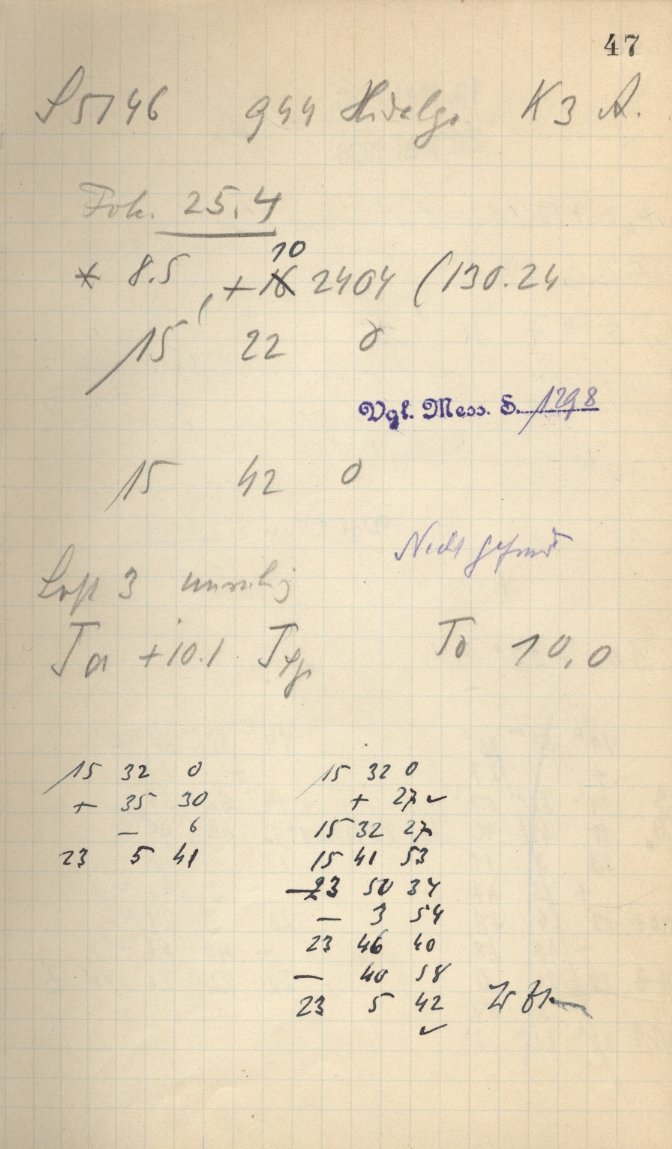 47
S 5146 944 Hidalgo K 3 A.
Fok. 25.4
10
* 8.5, +16 2404 (130.24
15 22 0
Vgl. Mess. S. 1298
15 42 0
Nicht
Luft 3 unruhig
Ta +10.1 Tp To 10,0
15 32 0
+ 35 30
— 6
23 5 41
15 32 0
+ 27 ✓
15 32 27
15 41 53
—23 50 34
— 3 54
23 46 40
— 40 58
23 5 42
✓